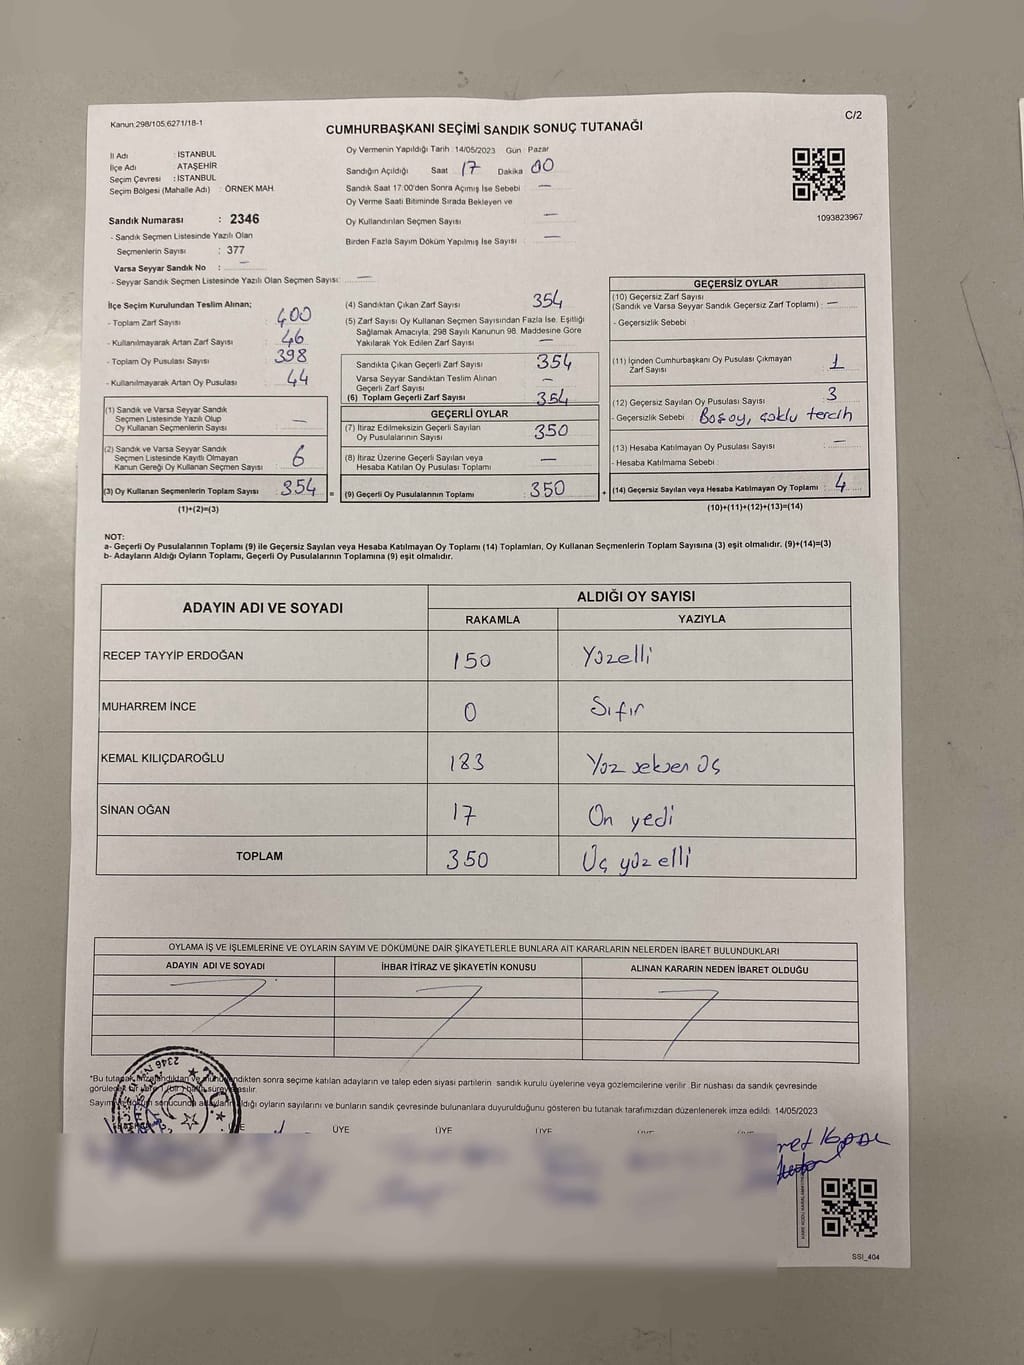 Kanun 298/105,6271/18-1
C/2
CUMHURBAŞKANI SEÇİMİ SANDIK SONUÇ TUTANAĞI
İl Adı : İSTANBUL
İlçe Adı : ATAŞEHİR
Seçim Çevresi : İSTANBUL
Seçim Bölgesi (Mahalle Adı) : ÖRNEK MAH.
Sandık Numarası : 2346
- Sandık Seçmen Listesinde Yazılı Olan
Seçmenlerin Sayısı : 377
Varsa Seyyar Sandık No : —
- Seyyar Sandık Seçmen Listesinde Yazılı Olan Seçmen Sayısı: —
Oy Vermenin Yapıldığı Tarih 14/05/2023 Gün : Pazar
Sandığın Açıldığı Saat 17 Dakika 00
Sandık Saat 17:00'den Sonra Açımış İse Sebebi —
Oy Verme Saati Bitiminde Sırada Bekleyen ve
Oy Kullandırılan Seçmen Sayısı —
Birden Fazla Sayım Döküm Yapılmış İse Sayısı : —
1093823967
İlçe Seçim Kurulundan Teslim Alınan;
- Toplam Zarf Sayısı : 400
- Kullanılmayarak Artan Zarf Sayısı : 46
- Toplam Oy Pusulası Sayısı : 398
- Kullanılmayarak Artan Oy Pusulası : 44
(1) Sandık ve Varsa Seyyar Sandık
Seçmen Listesinde Yazılı Olup
Oy Kullanan Seçmenlerin Sayısı : —
(2) Sandık ve Varsa Seyyar Sandık
Seçmen Listesinde Kayıtlı Olmayan
Kanun Gereği Oy Kullanan Seçmen Sayısı : 6
(3) Oy Kullanan Seçmenlerin Toplam Sayısı : 354 =
(1)+(2)=(3)
(4) Sandıktan Çıkan Zarf Sayısı 354
(5) Zarf Sayısı Oy Kullanan Seçmen Sayısından Fazla İse, Eşitliği
Sağlamak Amacıyla, 298 Sayılı Kanunun 98. Maddesine Göre
Yakılarak Yok Edilen Zarf Sayısı —
Sandıkta Çıkan Geçerli Zarf Sayısı 354
Varsa Seyyar Sandıktan Teslim Alınan
Geçerli Zarf Sayısı —
(6) Toplam Geçerli Zarf Sayısı 354
GEÇERLİ OYLAR
(7) İtiraz Edilmeksizin Geçerli Sayılan
Oy Pusulalarının Sayısı 350
(8) İtiraz Üzerine Geçerli Sayılan veya
Hesaba Katılan Oy Pusulası Toplamı —
(9) Geçerli Oy Pusulalarının Toplamı : 350 +
GEÇERSİZ OYLAR
(10) Geçersiz Zarf Sayısı
(Sandık ve Varsa Seyyar Sandık Geçersiz Zarf Toplamı) : —
- Geçersizlik Sebebi :
(11) İçinden Cumhurbaşkanı Oy Pusulası Çıkmayan
Zarf Sayısı : 1
(12) Geçersiz Sayılan Oy Pusulası Sayısı : 3
- Geçersizlik Sebebi : Boş oy, çoklu tercih
(13) Hesaba Katılmayan Oy Pusulası Sayısı : —
- Hesaba Katılmama Sebebi :
(14) Geçersiz Sayılan veya Hesaba Katılmayan Oy Toplamı : 4
(10)+(11)+(12)+(13)=(14)
NOT:
a- Geçerli Oy Pusulalarının Toplamı (9) ile Geçersiz Sayılan veya Hesaba Katılmayan Oy Toplamı (14) Toplamları, Oy Kullanan Seçmenlerin Toplam Sayısına (3) eşit olmalıdır. (9)+(14)=(3)
b- Adayların Aldığı Oyların Toplamı, Geçerli Oy Pusulalarının Toplamına (9) eşit olmalıdır.
ADAYIN ADI VE SOYADI
ALDIĞI OY SAYISI
RAKAMLA YAZIYLA
RECEP TAYYİP ERDOĞAN 150 Yüzelli
MUHARREM İNCE 0 Sıfır
KEMAL KILIÇDAROĞLU 183 Yüz seksen üç
SİNAN OĞAN 17 On yedi
TOPLAM 350 Üç yüz elli
OYLAMA İŞ VE İŞLEMLERİNE VE OYLARIN SAYIM VE DÖKÜMÜNE DAİR ŞİKAYETLERLE BUNLARA AİT KARARLARIN NELERDEN İBARET BULUNDUKLARI
ADAYIN ADI VE SOYADI İHBAR İTİRAZ VE ŞİKAYETİN KONUSU ALINAN KARARIN NEDEN İBARET OLDUĞU
2346
*Bu tutanak sonra seçime katılan adayların ve talep eden siyasi partilerin sandık kurulu üyelerine veya gözlemcilerine verilir .Bir nüshası da sandık çevresinde
oyların sayılarını ve bunların sandık çevresinde bulunanlara duyurulduğunu gösteren bu tutanak tarafımızdan düzenlenerek imza edildi. 14/05/2023
ÜYE ÜYE ÜYE
SSI_404